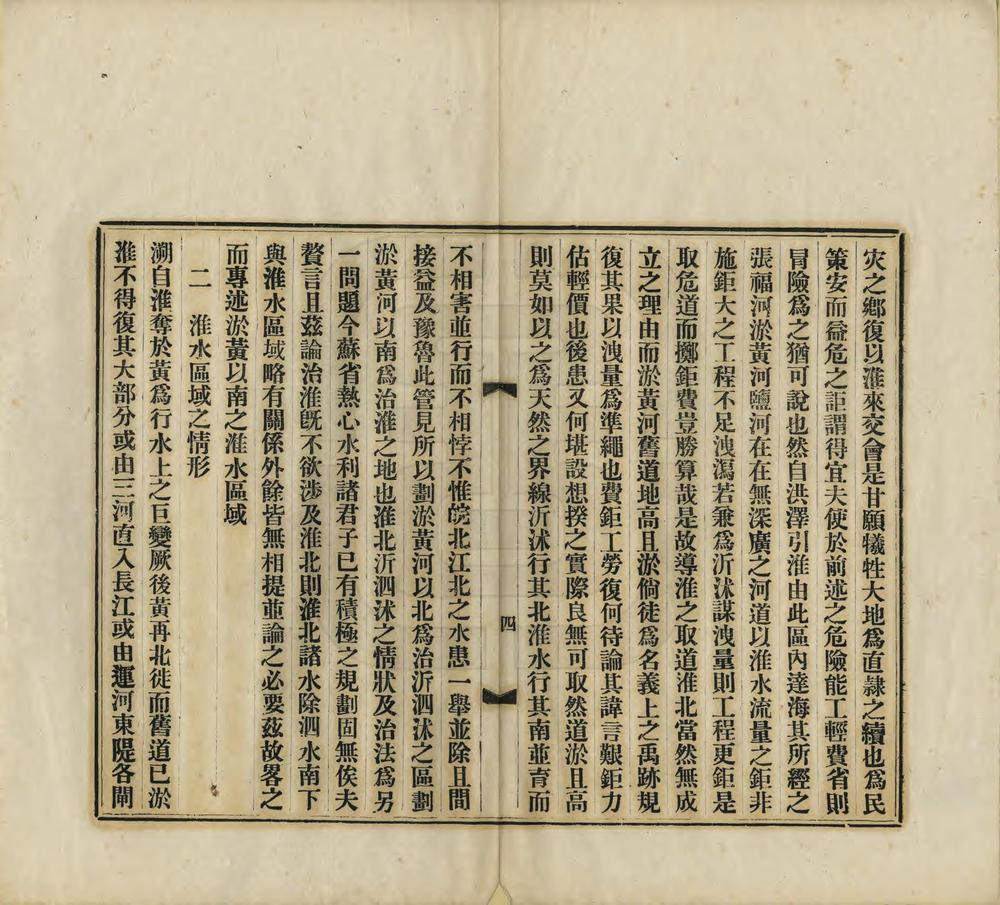 灾之鄉復以淮來交會是甘願犧牲大地爲直隷之續也爲民
策安而益危之詎謂得宜夫使於前述之危險能工輕費省則
冒險爲之猶可說也然自洪澤引淮由此區內達海其所經之
張福河淤黃河鹽河在在無深廣之河道以淮水流量之鉅非
施鉅大之工程不足洩瀉若兼爲沂沭謀洩量則工程更鉅是
取危道而擲鉅費豈勝算哉是故導淮之取道淮北當然無成
立之理由而淤黃河舊道地高且淤倘徒爲名義上之禹跡規
復其果以洩量爲準繩也費鉅工勞復何待論其諱言艱鉅力
估輕價也後患又何堪設想揆之實際良無可取然道淤且高
則莫如以之爲天然之界線沂沭行其北淮水行其南並育而
四
不相害並行而不相悖不惟皖北江北之水患一舉並除且間
接益及豫魯此管見所以劃淤黃河以北爲治沂泗沭之區劃
淤黃河以南爲治淮之地也淮北沂泗沭之情狀及治法爲另
一問題今蘇省熱心水利諸君子已有積極之規劃固無俟夫
贅言且茲論治淮旣不欲涉及淮北則淮北諸水除泗水南下
與淮水區域略有關係外餘皆無相提並論之必要茲故畧之
而專述淤黃以南之淮水區域
二　淮水區域之情形
溯自淮奪於黃爲行水上之巨變厥後黃再北徙而舊道已淤
淮不得復其大部分或由三河直入長江或由運河東隄各閘